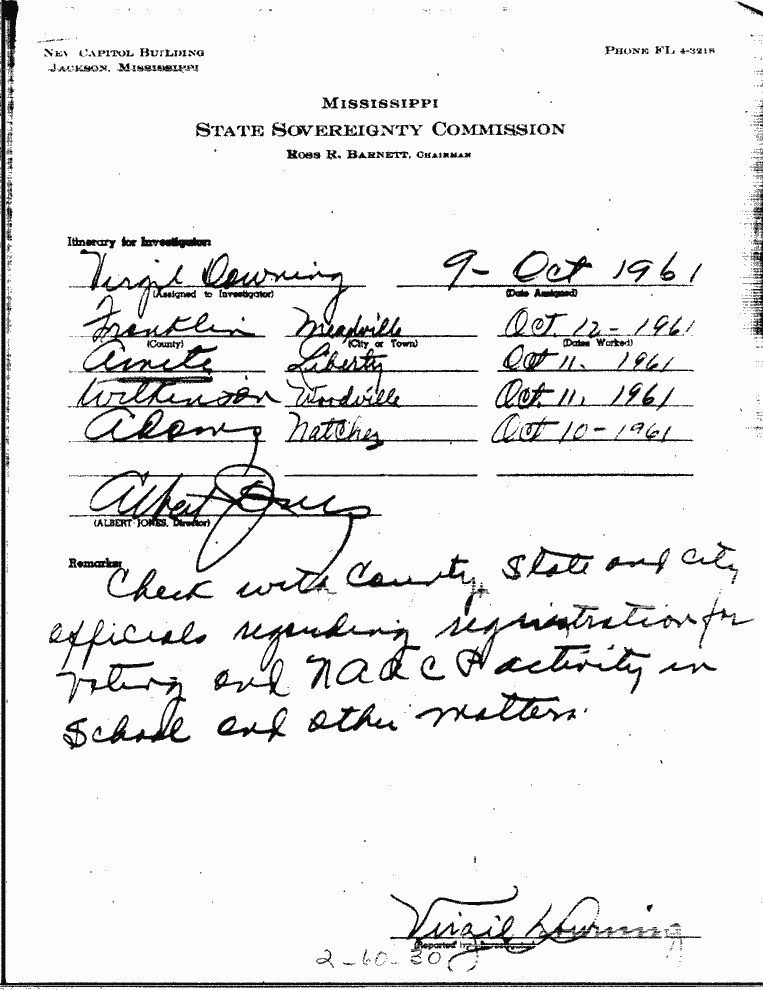 NEW CAPITOL BUILDING
JACKSON, MISSISSIPPI
PHONE FL 4-3218
MISSISSIPPI
STATE SOVEREIGNTY COMMISSION
ROSS R. BARNETT, CHAIRMAN
Itinerary for Investigator:
Virgil Downing 9- Oct 1961
(Assigned to Investigator) (Date Assigned)
Franklin Meadville Oct. 12-1961
(County) (City or Town) (Dates Worked)
Amite Liberty Oct 11. 1961
Wilkinson Woodville Oct. 11, 1961
Adams Natchez Oct 10-1961
Albert Jones
(ALBERT JONES, Director)
Remarks:
Check with County, State and City
officials regarding registration for
voting and NAACP activity in
School and other matters.
Virgil Downing
(Reported by
2-60-30